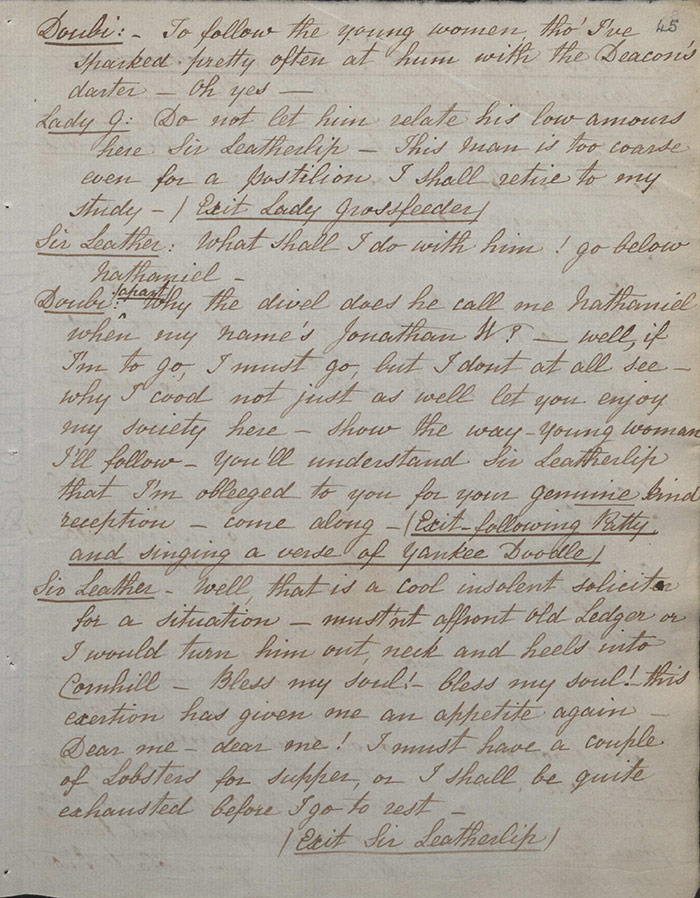 45
Doubi: - To follow the young women, tho' I've
sparked pretty often at hum with the Deacon's
darter - Oh yes -
Lady G: Do not let him relate his low amours
here Sir Leatherlip - This man is too coarse
even for a postilion I shall retire to my
study - / Exit Lady Grossfeeder /
Sir Leather: What shall I do with him! go below
Nathaniel -
Doubi: /apart/ Why the divel does he call me Nathaniel
when my name's Jonathan W? - well, if
I'm to go, I must go, but I dont at all see -
why I cood not just as well let you enjoy
my society here - show the way - young woman
I'll follow - You'll understand Sir Leatherlip
that I'm obleeged to you for your genuine kind
reception - come along - / Exit - following Kitty,
and singing a verse of Yankee Doodle /
Sir Leather - Well, that is a cool insolent solicitor
for a situation - mustn't affront old Ledger or
I would turn him out, neck and heels into
Cornhill - Bless my soul! - bless my soul! - this
exertion has given me an appetite again -
Dear me - dear me! I must have a couple
of Lobsters for supper, or I shall be quite
exhausted before I go to rest -
/ Exit Sir Leatherlip /